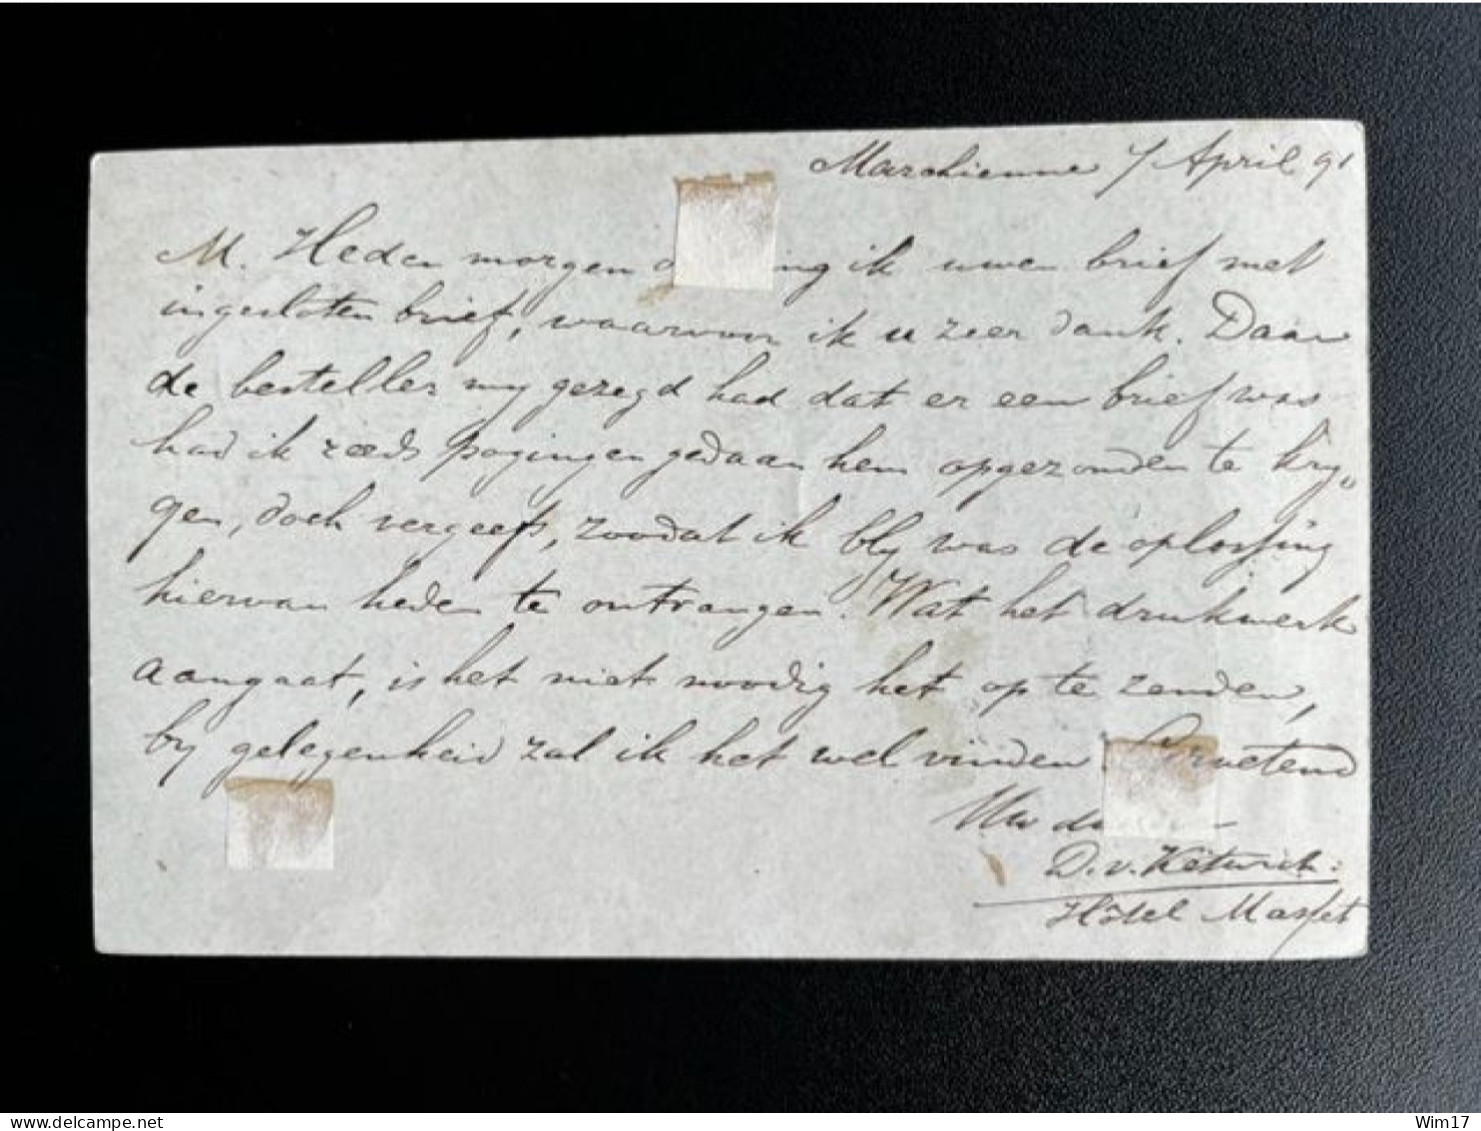 Marchienne 7 April 91
M. Heden morgen o ing ik uwen brief met
ingesloten brief, waarvoor ik u zeer dank. Daar
de besteller my gezegd had dat er een brief was
had ik reeds pogingen gedaan hem opgezonden te kry-
gen, doch vergeefs, zoodat ik bly was de oplossing
hiervan heden te ontvangen. Wat het drukwerk
aangaat, is het niet noodig het op te zenden,
by gelegenheid zal ik het wel vinden. Groetend
Uw d
D. v. Ketwich
Hôtel Masset
delcampe.net
Wim17